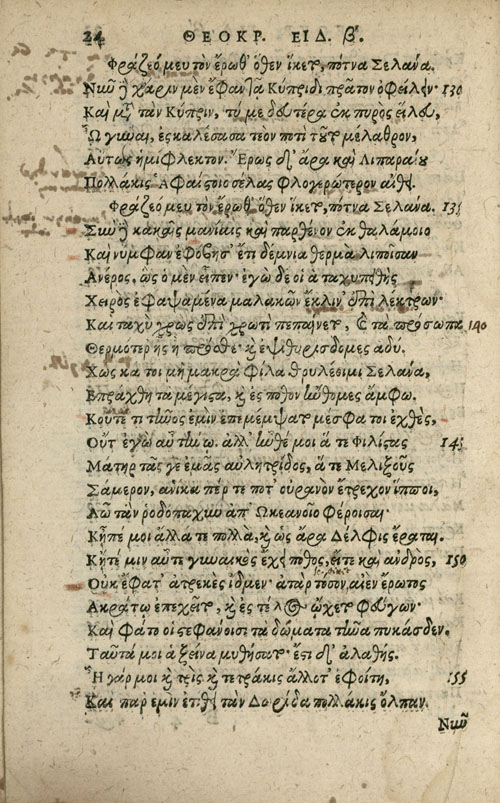 24 ΘΕΟΚΡ. ΕΙΔ. β΄.
Φράζεό μευ τὸν ἔρωθ' ὅθεν ἵκετο, πότνα Σελάνα.
Νῦν δὲ χάριν μὲν ἔφαν τᾷ Κύπριδι πρᾶτον ὀφείλην· 130
Καὶ μετὰ τὰν Κύπριν, τύ με δευτέρα ἐκ πυρὸς εἵλευ,
Ὦ γύναι, ἐσκαλέσασα τεὸν ποτὶ τοῦτο μέλαθρον,
Αὕτως ἡμίφλεκτον. Ἔρως δ' ἄρα καὶ Λιπαραίου
Πολλάκις Ἁφαίστοιο σέλας φλογερώτερον αἴθει.
Φράζεό μευ τὸν ἔρωθ' ὅθεν ἵκετο, πότνα Σελάνα. 135
Σὺν δὲ κακαῖς μανίαις καὶ παρθένον ἐκ θαλάμοιο
Καὶ νύμφαν ἐφόβησ' ἔτι δέμνια θερμὰ λιποῖσαν
Ἀνέρος, ὣς ὁ μὲν εἶπεν· ἐγὼ δέ οἱ ἁ ταχυπειθὴς
Χειρὸς ἐφαψαμένα μαλακῶν ἔκλιν' ἐπὶ λέκτρων·
Καὶ ταχὺ χρὼς ἐπὶ χρωτὶ πεπαίνετο, καὶ τὰ πρόσωπα 140
Θερμότερ' ἦς ἢ πρόσθε· καὶ ἐψιθυρίσδομες ἁδύ.
Χὥς κά τοι μὴ μακρὰ φίλα θρυλέοιμι Σελάνα,
Ἐπράχθη τὰ μέγιστα, καὶ ἐς πόθον ἤνθομες ἄμφω.
Κοὔτε τι τῆνος ἐμὶν ἐπεμέμψατο μέσφα τοι ἐχθὲς,
Οὔτ' ἐγὼ αὖ τήνῳ. ἀλλ' ἦνθέ μοι ἅ τε Φιλίστας 145
Μάτηρ τᾶς γε ἐμᾶς αὐλητρίδος, ἅ τε Μελιξοῦς
Σάμερον, ἁνίκα πέρ τε ποτ' οὐρανὸν ἔτρεχον ἵπποι,
Ἀῶ τὰν ῥοδόπαχυν ἀπ' Ὠκεανοῖο φέροισαι·
Κἦπέ μοι ἄλλα τε πολλὰ, καὶ ὡς ἄρα Δέλφις ἔραται.
Κἤτέ μιν αὖτε γυναικὸς ἔχει πόθος, εἴτε καὶ ἀνδρὸς, 150
Οὐκ ἔφατ' ἀτρεκὲς ἴδμεν· ἀτὰρ τόσον, αἰὲν ἔρωτος
Ἀκράτω ἐπεχεῖτο, καὶ ἐς τέλος ᾤχετο φεύγων·
Καὶ φάτο οἱ στεφάνοισι τὰ δώματα τῆνα πυκάσδεν.
Ταῦτά μοι ἁ ξείνα μυθήσατο· ἔστι δ' ἀλαθής.
Ἦ γάρ μοι καὶ τρὶς καὶ τετράκις ἄλλοτ' ἐφοίτη, 155
Καὶ παρ' ἐμὶν ἐτίθει τὰν Δωρίδα πολλάκις ὄλπαν.
Νῦν